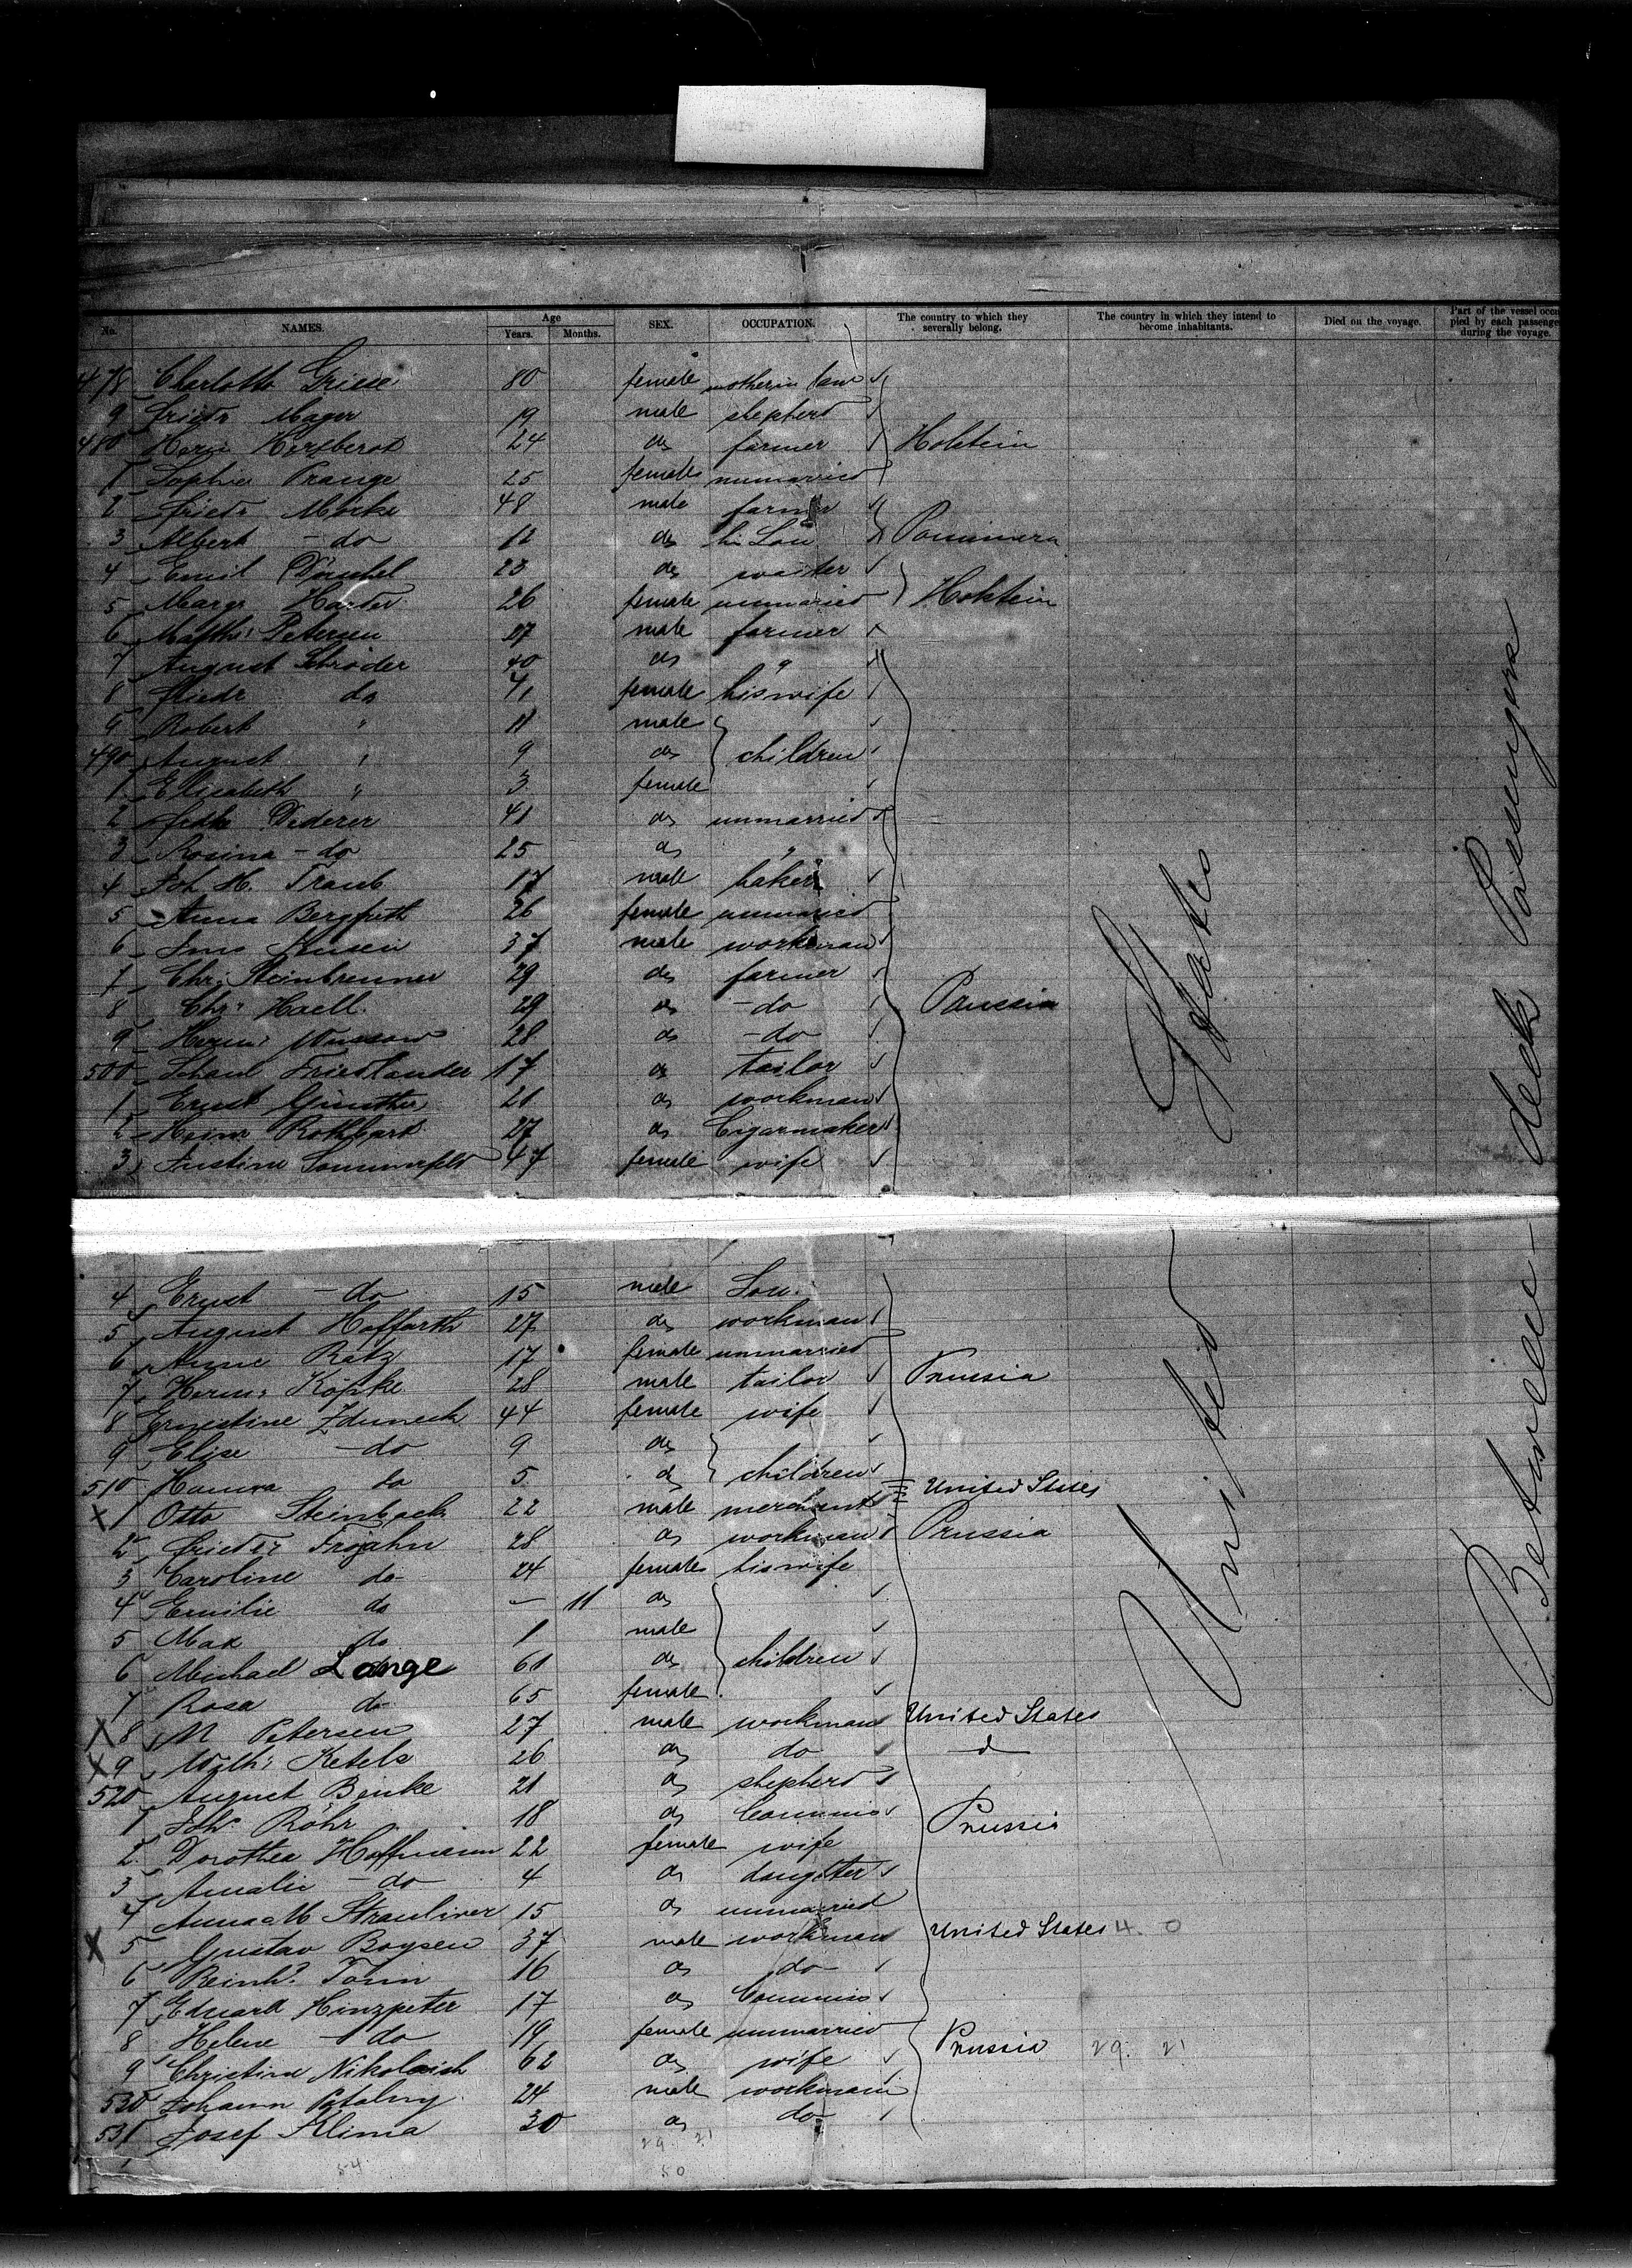 No. NAMES. Age Years. Months. SEX. OCCUPATION. The country to which they severally belong. The country in which they intend to become inhabitants. Died on the voyage. Part of the vessel occupied by each passenger during the voyage.
478 Charlotte Griese 80 female mother in law
9 Friedr Mager 19 male shepherd
480 24 do farmer Holstein
1 Sophie Prange 25 female unmarried
2 Friedr Mocke 48 male farmer
3 Albert - do 12 do his Son Pommern
4 Emil 23 do waiter
5 Margr Harder 26 female unmarried Holstein
6 Matths Petersen 27 male farmer
7 August Schröder 40 do "
8 Friedr do 41 female his wife
9 Robert " 11 male
490 August " 9 do children
1 Elisabeth " 3 female
2 Dederer 41 do unmarried
3 Rosina - do 25 do "
4 Joh. H. Traub 17 male baker
5 Anna 26 female unmarried
6 37 male workman
7 Chr. Steinbrenner 29 do farmer
8 Chr. Haell 29 do - do Prussia
9 Herm. Wussow 28 do - do
500 Friedlander 17 do tailor
1 Ernst Günther 21 do workman
2 Heinr Rothbart 27 do Cigarmaker
3 Justine Sommerfeld 47 female wife
4 Ernst - do 15 male Son
5 August Hoffarth 27 do workman
6 Anne Ratz 17 female unmarried
7 Herm. Köpke 28 male tailor Prussia
8 Ernestine Zduneck 44 female wife
9 Elise - do 9 do
510 do 5 do children
X 1 Otto Steinbach 22 male merchant United States
2 Friedr Trojahn 28 do workman Prussia
3 Caroline do 24 female his wife
4 Emilie do - 11 do
5 Max do 1 male
6 Michael Lange 61 do children
7 Rosa do 65 female
X 8 N Petersen 27 male workman United States
X 9 Wilh. Ketels 26 do do d
520 August Benke 21 do shepherd
1 Joh. Röhr 18 do Commis Prussia
2 Dorothea Hoffmann 22 female wife
3 Amalie - do 4 do daughter
4 Anna M 15 do unmarried
X 5 Gustav Boysen 37 male workman United States 4. 0
6 Reinh. 16 do do
7 Eduard Hinzpeter 17 do Commis
8 Helene - do 19 female unmarried Prussia 29. 21
9 Christine Nikolaisch 62 do wife
530 Johann 24 male workman
531 Josef Klima 30 do do
29. 21
54 50
United States
Between deck Passengers